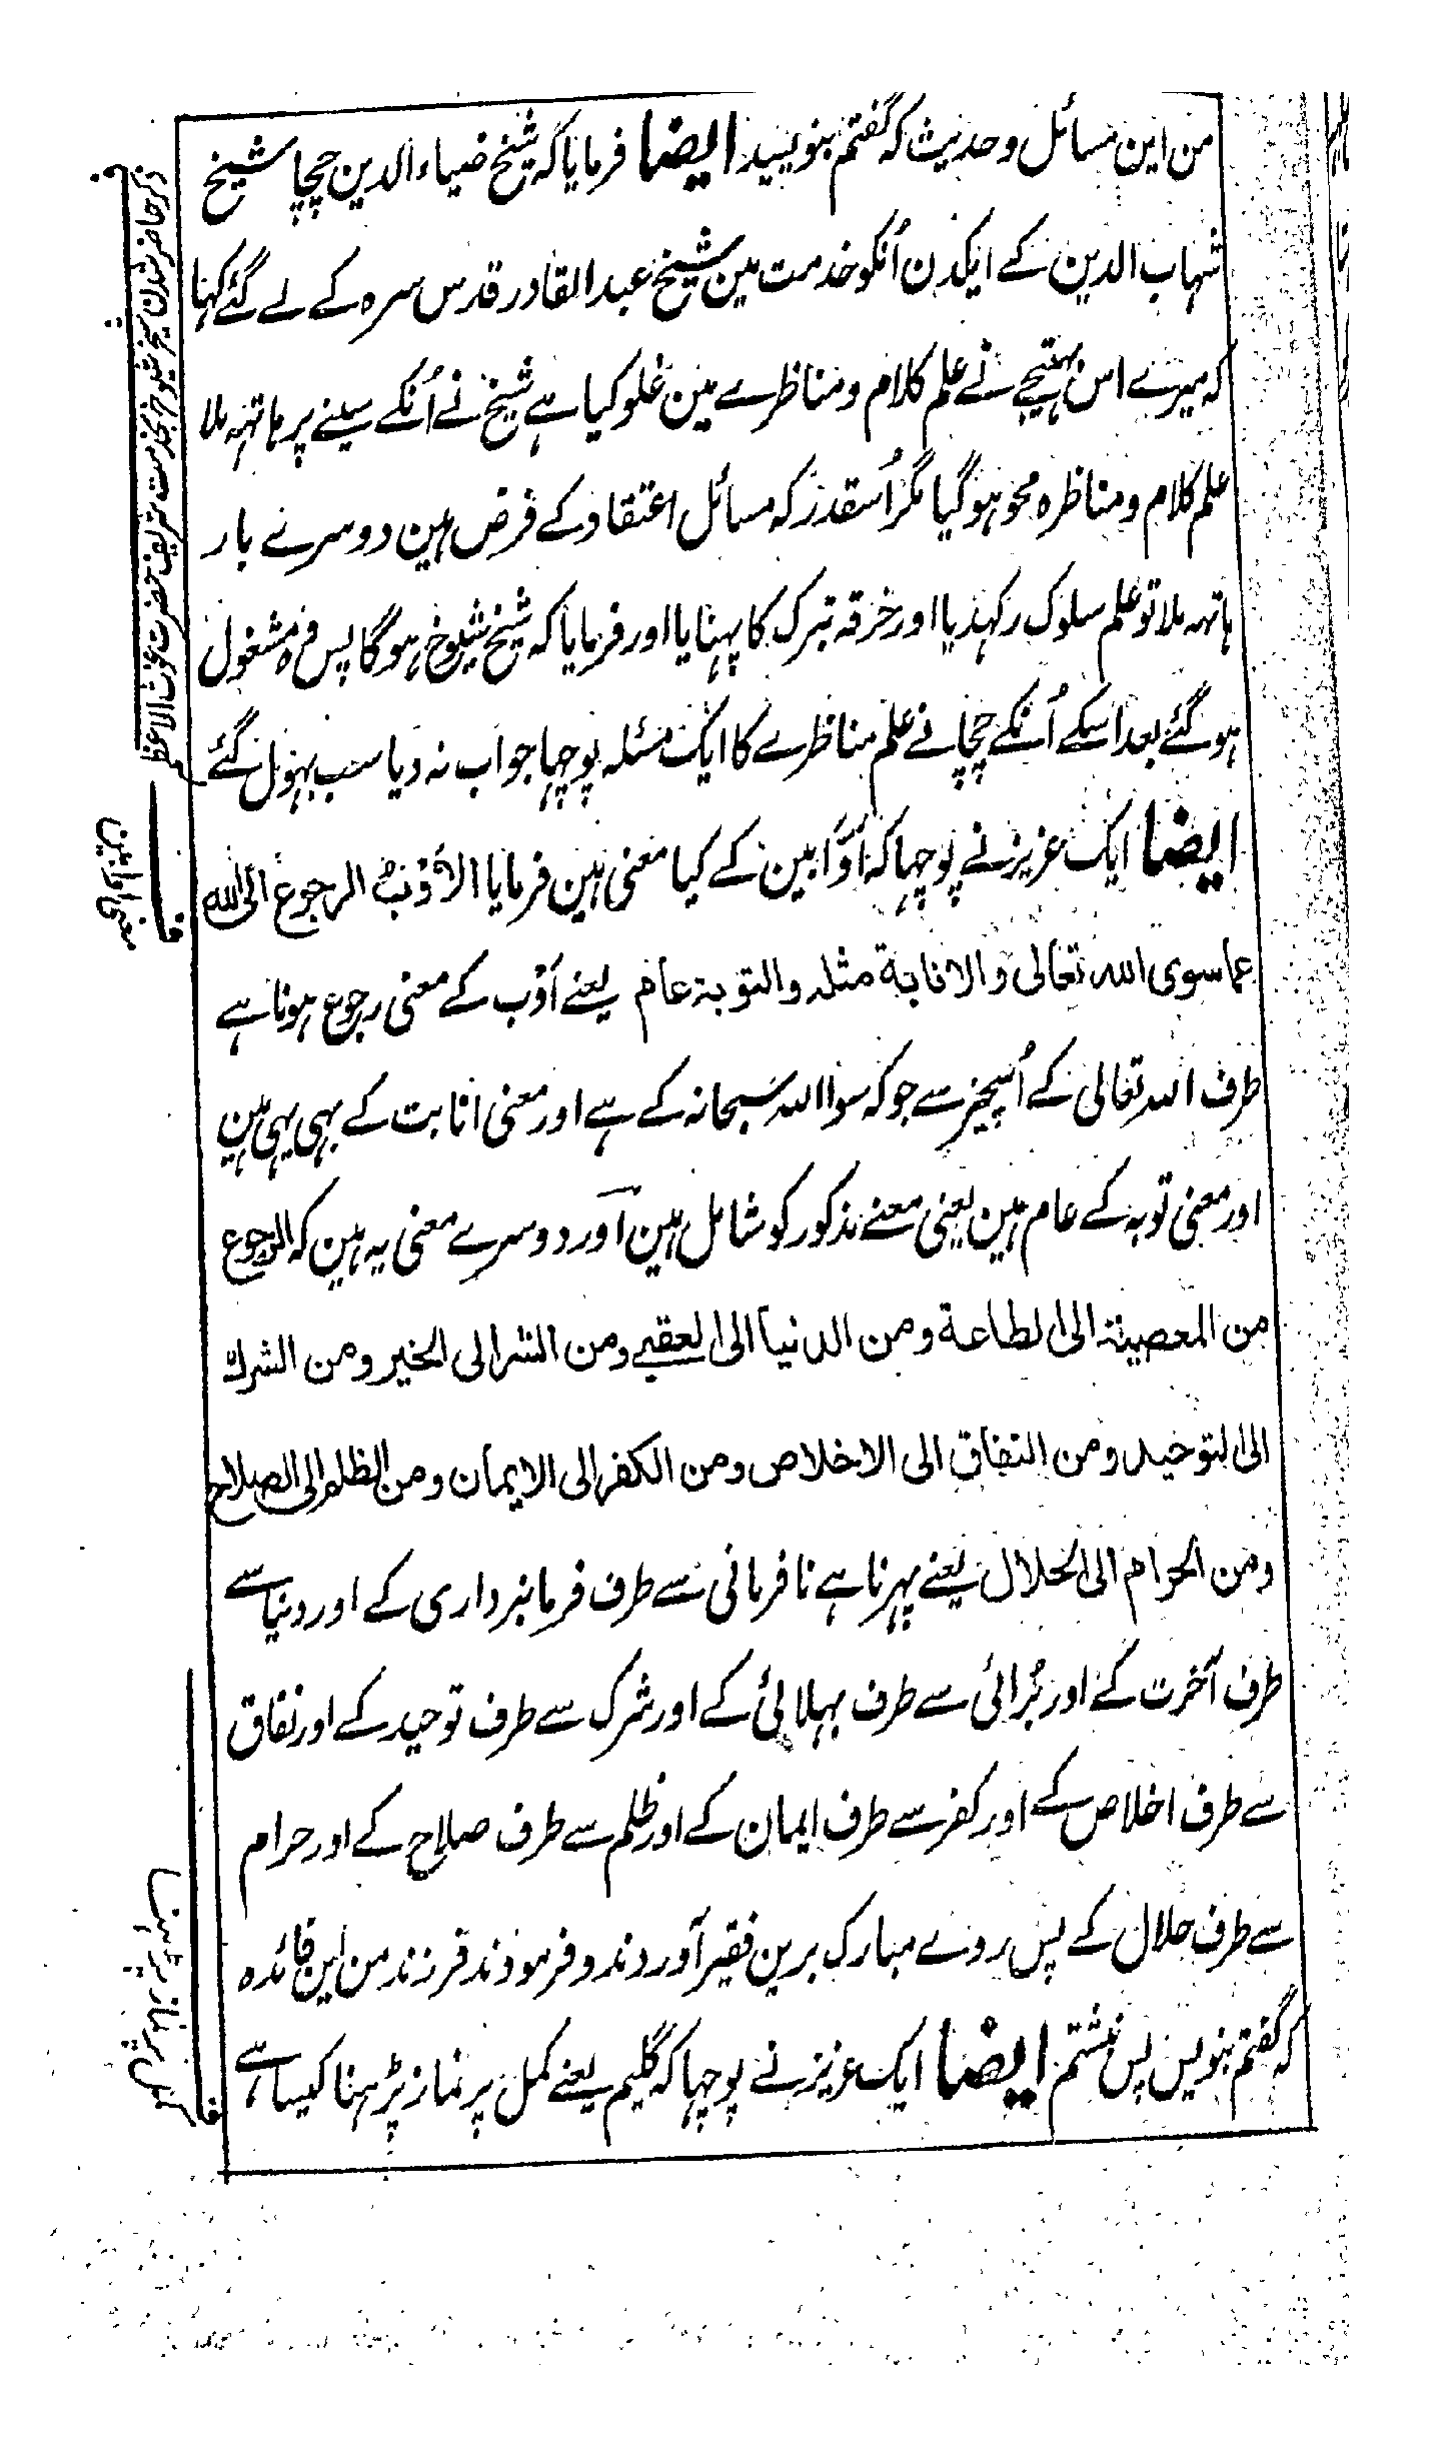 من این مسائل و حدیث که گفتم بنویسید ایضا فرمایا که شیخ ضیاء الدین چچا شیخ
شہاب الدین کے ایکدن اُنکو خدمت مین شیخ عبد القادر قدس سرہ کے لے گئے کہا
کہ میرے اس بہتیجے نے علم کلام و مناظرے مین غلو کیا ہے شیخ نے اُنکے سینے پر ہاتہہ ملا
علم کلام و مناظرہ محو ہو گیا مگر اُسقدر کہ مسائل اعتقاد کے فرض ہین دوسرے بار
ہاتہہ ملا تو علم سلوک رکہدیا اور خرقہ تبرک کا پہنایا اور فرمایا کہ شیخ شیوخ ہوگا پس وہ مشغول
ہو گئے بعد اسکے اُنکے چچا نے علم مناظرے کا ایک مسئلہ پوچہا جواب نہ دیا سب بہول گئے
ایضا ایک عزیز نے پوچہا کہ اَوَّابین کے کیا معنی ہین فرمایا الاَوْبُ الرجوع الی اللہ
عما سوی اللہ تعالی و الانابة مثلہ والتوبة عام یعنے اَوْب کے معنی رجوع ہونا ہے
طرف اللہ تعالی کے اُسچیز سے جو کہ سوا اللہ سبحانہ کے ہے اور معنی انابت کے بہی یہی ہین
اور معنی توبہ کے عام ہین یعنی معنے مذکور کو شامل ہین اور دوسرے معنی یہ ہین کہ الرجوع
من المعصیة الی الطاعة ومن الدنیا الی العقبے ومن الشر الی الخیر ومن الشرك
الی التوحید ومن النفاق الی الاخلاص ومن الکفر الی الایمان ومن الظلم الی الصلاح
ومن الحرام الی الحلال یعنے پہرنا ہے نافرمانی سے طرف فرمانبرداری کے اور دنیا سے
طرف آخرت کے اور بُرائی سے طرف بہلائی کے اور شرک سے طرف توحید کے اور نفاق
سے طرف اخلاص کے اور کفر سے طرف ایمان کے اور ظلم سے طرف صلاح کے اور حرام
سے طرف حلال کے پس روے مبارک برین فقیر آوردند و فرمودند فرزند من این فائدہ
کہ گفتم بنویس پس نبشتم ایضا ایک عزیز نے پوچہا کہ گلیم یعنے کمل پر نماز پڑہنا کیسا ہے
ذکر حاضر شدن شیخ شیوخ بخدمت شریف حضرت غوث الاعظم
ف معنی اوابین
ف کمل پر نماز پڑہنا